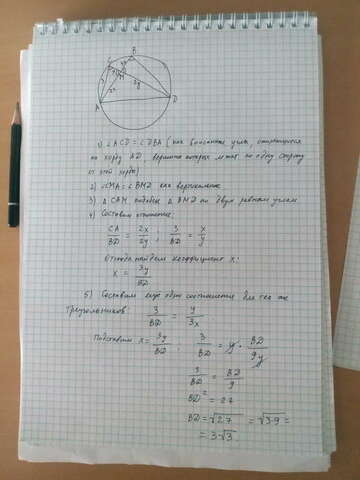 B
C
3x
M
3
2x
2y
A
D
1) ∠ACD = ∠DBA (как вписанные углы, опирающиеся
на хорду AD, вершины которых лежат по одну сторону
от этой хорды)
2) ∠CMA = ∠BMD как вертикальные
3) △ CAM подобен △ BMD по двум равным углам
4) Составим отношение:
CA/BD = 2x/2y ; 3/BD = x/y
Отсюда найдем коэффициент x:
x = 3y/BD
5) Составим еще одно соотношение для тех же
треугольников: 3/BD = y/3x
Подставим x = 3y/BD ; 3/BD = y · BD/9y
3/BD = BD/9
BD² = 27
BD = √27 = √3·9 =
= 3√3.